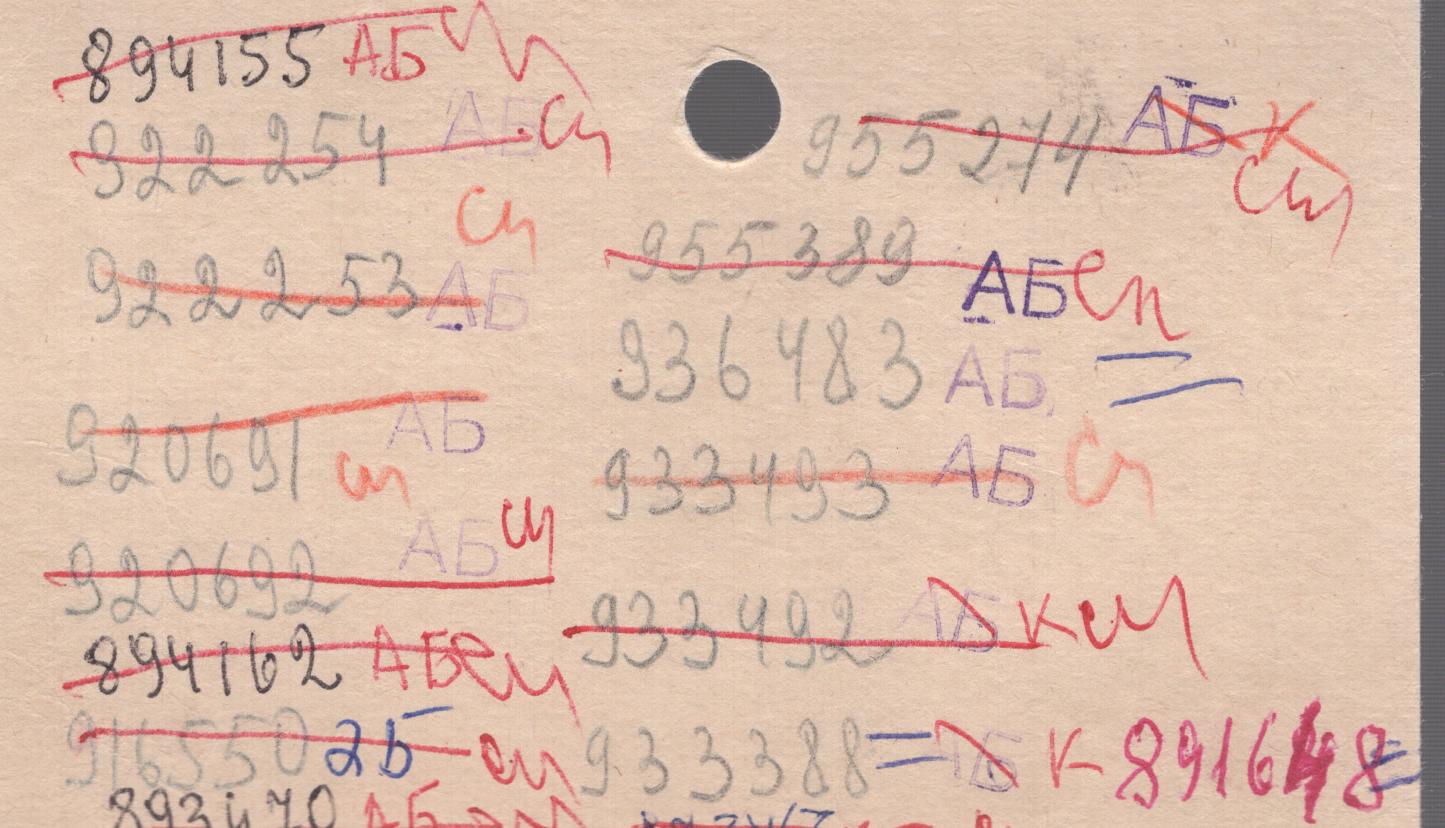 894155 АБ
922254 АБ сп
сп
922253 АБ
920691 АБ
сп
920692 АБ сп
894162 АБ сп
916550 2Б сп
893470 АБ
955274 АБ К
сп
955389 АБ сп
936483 АБ =
933493 АБ сп
933492 АБ К сп
933388 = АБ К 891648 =